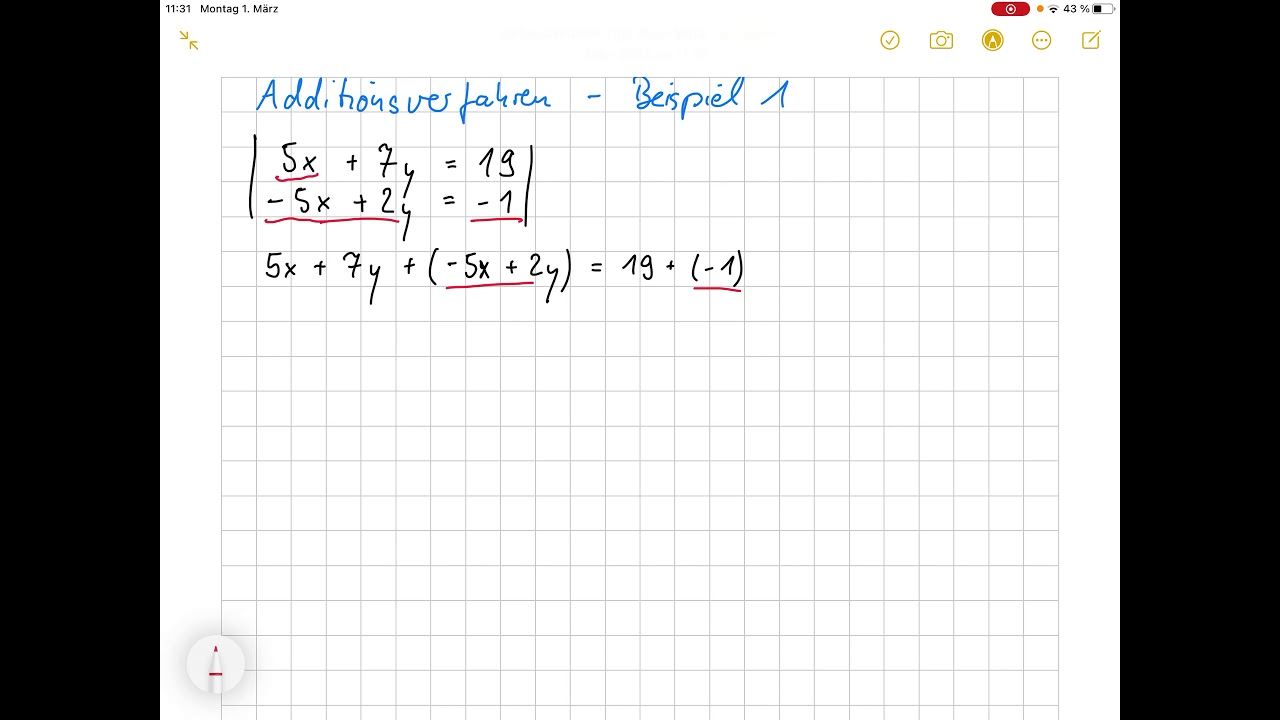 11:31 Montag 1. März 43 %
Additionsverfahren - Beispiel 1
5x + 7y = 19
-5x + 2y = -1
5x + 7y + (-5x + 2y) = 19 + (-1)